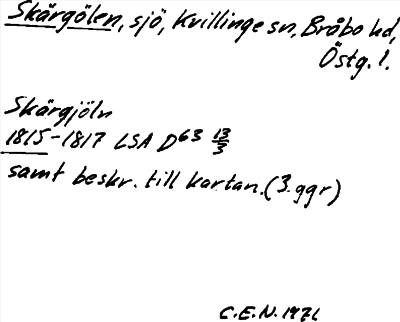 Skärgölen, sjö, Kvillinge sn, Bråbo hd,
Östg. l.
Skärgjöln
1815-1817 LSA D63 13/3
samt beskr. till kartan. (3 ggr)
C.E.N. 1971